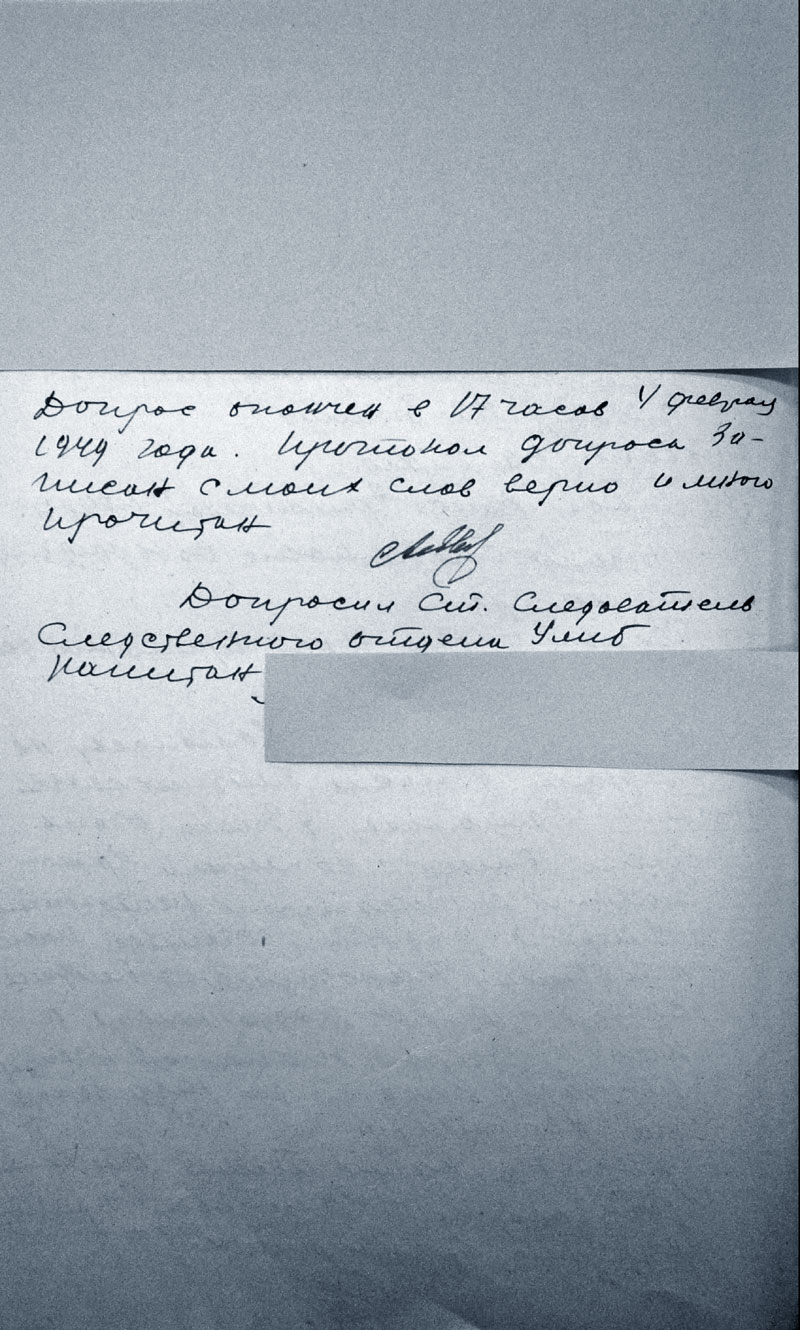 Допрос окончен в 17 часов 4 феврал
1949 года. Протокол допроса за-
писан с моих слов верно и мною
прочитан
Допросил Ст. Следователь
Следственного отдела Умгб
капитан